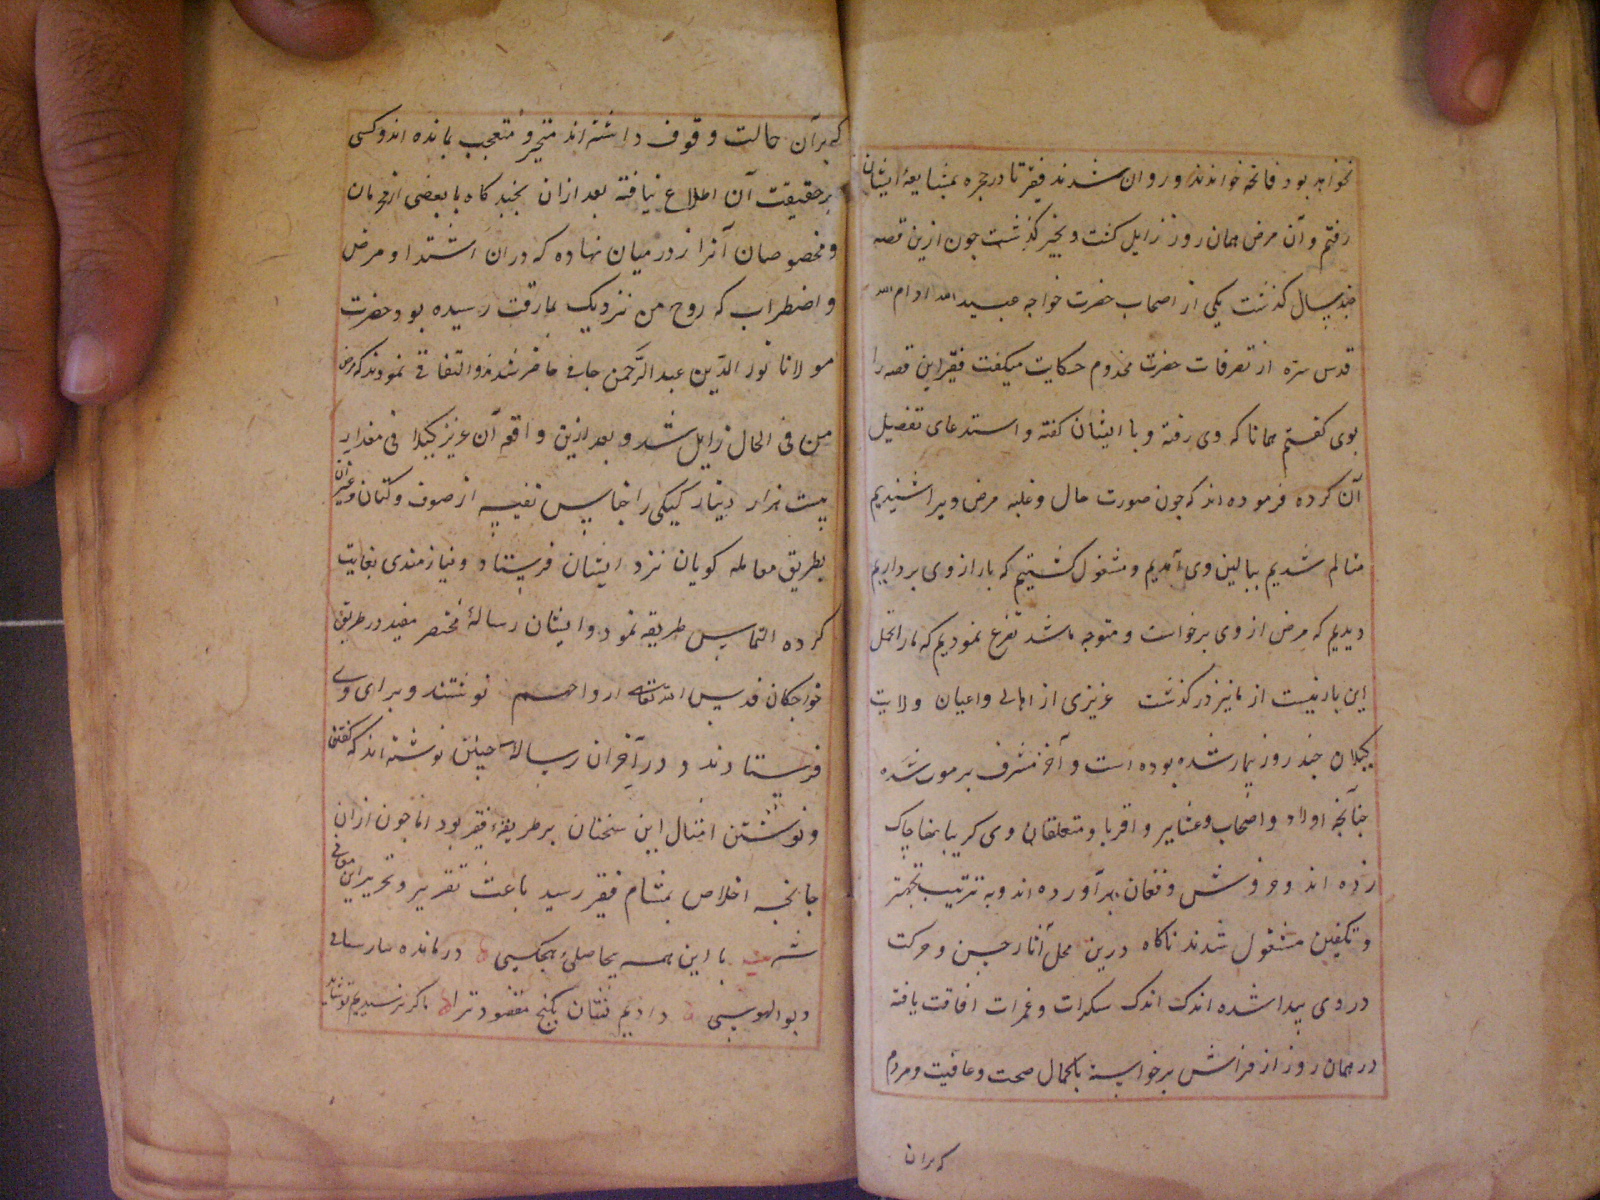 نخواهد بود فاتحه خواندند و روان شدند فقیر تا در حجره بمشایعهٔ ایشان
رفتم و آن مرض همان روز زایل کشت و بخیر کذشت چون ازین قصه
چند سال کذشت یکی از اصحاب حضرت خواجه عبید الله ادام الله
قدس سره از تصرفات حضرت مخدوم حکایت میکفت فقیر این قصه را
بوی کفتم همانا که وی رفته و با ایشان کفته و استدعای تفصیل
آن کرده فرموده اند که چون صورت حال و غلبه مرض ویرا شنیدیم
متالم شدیم ببالین وی آمدیم و مشغول کشتیم که بار از وی برداریم
دیدیم که مرض از وی برخاست و متوجه ما شد تضرع نمودیم که ما را تحمل
این بار نیست از ما نیز درکذشت عزیزی از اهالی و اعیان ولایت
کیلان چند روز بیمار شده بوده است و آخر مشرف بر موت شده
چنانچه اولاد و اصحاب و عشایر و اقربا و متعلقان وی کریبانها چاک
زده اند و خروش و فغان برآورده اند و به ترتیب تجهیز
و تکفین مشغول شدند ناکاه درین محل آثار حس و حرکت
در وی پیدا شده اندک اندک سکرات و غمرات افاقت یافته
در همان روز از فراش برخواسته با کمال صحت و عافیت و مردم
که بران
که بر آن حالت وقوف داشته اند متحیر و متعجب بمانده اند و کسی
بر حقیقت آن اطلاع نیافته بعد ازان بچند کاه با بعضی از محرمان
و مخصوصان آن راز در میان نهاده که دران اشتداد مرض
و اضطراب که روح من نزدیک بمارقت رسیده بود حضرت
مولانا نور الدین عبد الرحمن جامی حاضر شدند و التفاتی نمودند که مرض
من فی الحال زایل شد و بعد ازین واقعه آن عزیز کیلانی مقدار
بیست هزار دینار کپکی را اجناس نفیسه از صوف و کتان و غیر آن
بطریق معامله کویان نزد ایشان فرستاد و نیازمندی بغایت
کرده التماس طریقه نمود و ایشان رسالهٔ مختصر مفید در طریق
خواجکان قدس الله تعالی ارواحهم نوشتند و برای وی
فرستادند و در آخر آن رساله چنین نوشته اند که کفتن
و نوشتن امثال این سخنان بر طریقهٔ فقیر نبود اما چون ازان
جانب رایحه اخلاص بمشام فقیر رسید باعث تقریر و تحریر این معانی
شد با این همه بیحاصلی و هیچکسی درمانده بنارسائی
و بوالهوسی دادیم نشان بکنج مقصود ترا ما کر نرسیدیم تو شاید